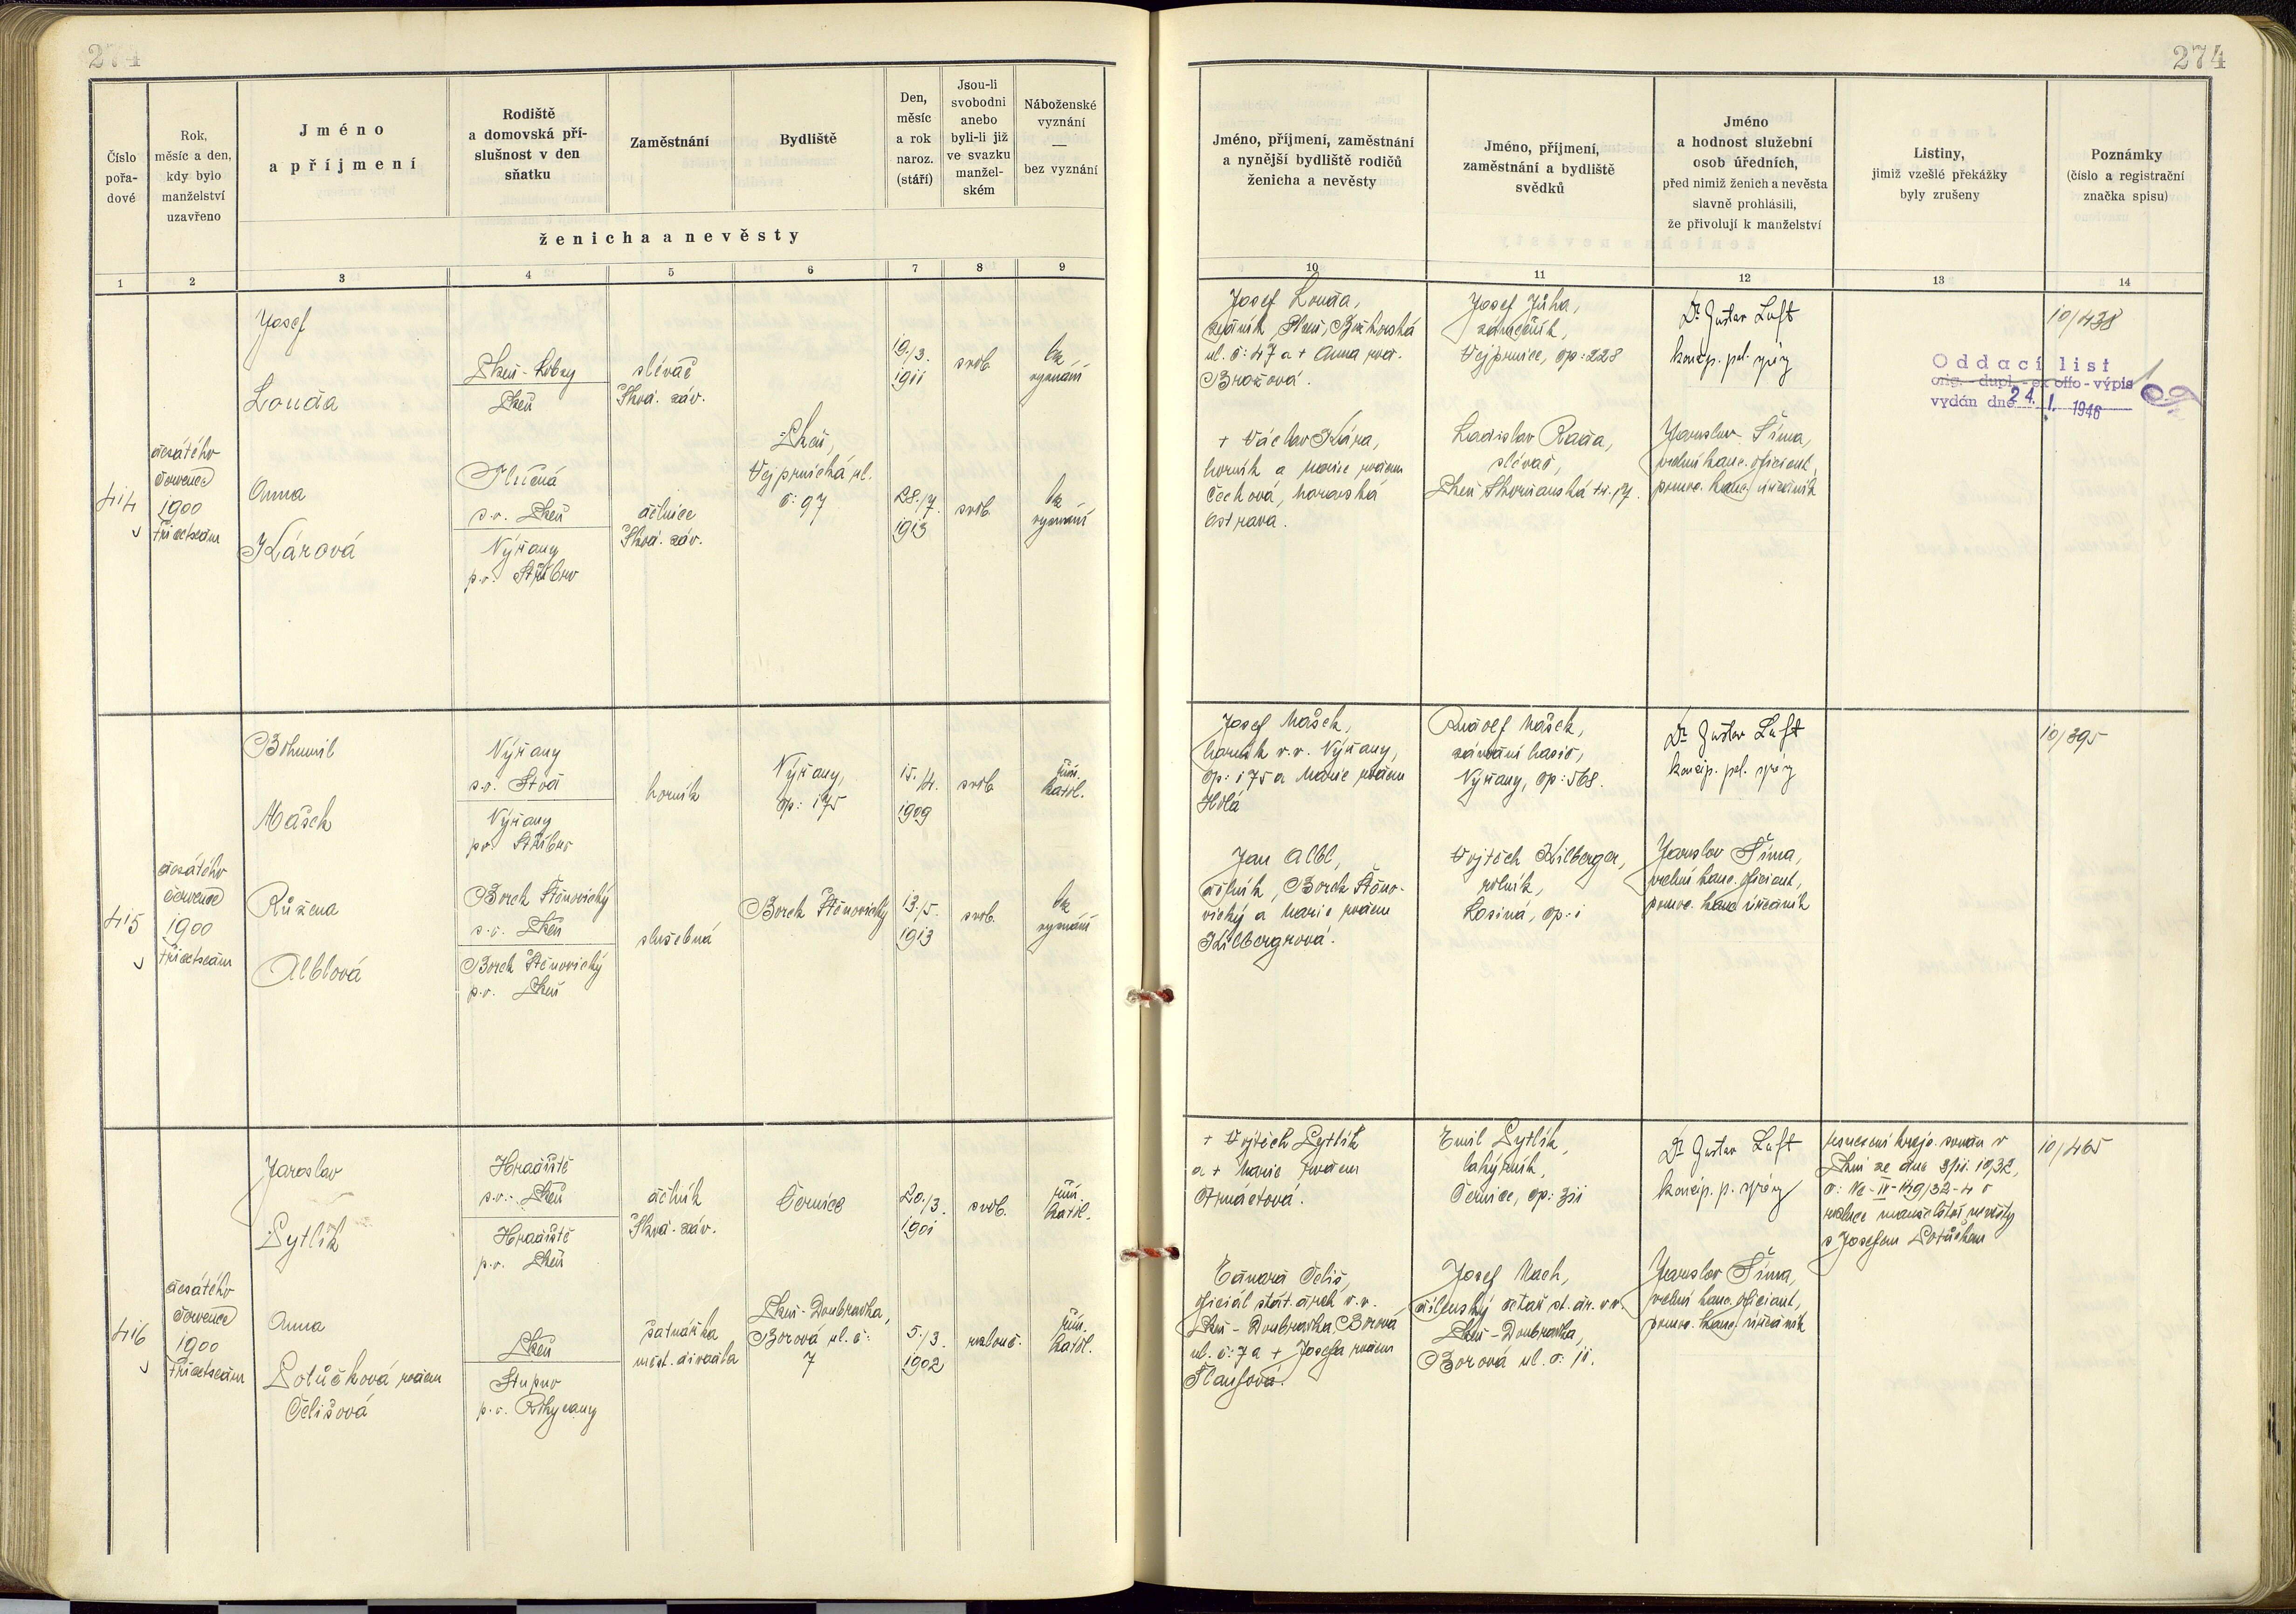 274
274
Číslo
pořa-
dové
Rok,
měsíc a den,
kdy bylo
manželství
uzavřeno
Jméno
a příjmení
Rodiště
a domovská pří-
slušnost v den
sňatku
Zaměstnání
Bydliště
Den,
měsíc
a rok
naroz.
(stáří)
Jsou-li
svobodni
anebo
byli-li již
ve svazku
manžel-
ském
Náboženské
vyznání
—
bez vyznání
ženicha a nevěsty
1 2 3 4 5 6 7 8 9
Jméno, příjmení, zaměstnání
a nynější bydliště rodičů
ženicha a nevěsty
Jméno, příjmení,
zaměstnání a bydliště
svědků
Jméno
a hodnost služební
osob úředních,
před nimiž ženich a nevěsta
slavně prohlásili,
že přivolují k manželství
Listiny,
jimiž vzešlé překážky
byly zrušeny
Poznámky
(číslo a registrační
značka spisu)
10 11 12 13 14
414
desátého
července
1900
třicetsedm
Josef
Louda
Plzeň-Lobzy
Plzeň
slévač
Škod. záv.
19./3.
1911
svob.
bez
vyznání
Plzeň,
Vejprnická ul.
č: 97
Anna
Klárová
Tlučná
s.o. Plzeň
Nýřany
p.o. Stříbro
dělnice
Škod. záv.
28./7.
1913
svob.
bez
vyznání
Josef Louda,
zedník, Plzeň,
ul. č: 47 a + Anna rod.
Brožová.
+ Václav Klára,
horník a Marie rodem
Čechová, Moravská
Ostrava.
Josef Jůha,
zámečník,
Vejprnice, čp: 228
Ladislav Rada,
slévač,
Plzeň Skvrňanská tř. 17.
Dr Gustav Luft
koncip. pol. správy
Jaroslav Šíma,
vrchní kanc. oficiant,
pomoc. kanc. úředník
10/438
Oddací list
orig. - dupl. - ex offo - výpis
vydán dne 24. I. 1946
415
desátého
července
1900
třicetsedm
Bohumil
Mašek
Nýřany
s.o. Stod
Nýřany
p.o. Stříbro
horník
Nýřany,
čp: 175
15./4.
1909
svob.
řím.
katol.
Růžena
Alblová
Borek Štěnovický
s.o. Plzeň
Borek Štěnovický
p.o. Plzeň
služebná
Borek Štěnovický
13./5.
1913
svob.
bez
vyznání
Josef Mašek,
horník v.v. Nýřany,
čp: 175 a Marie rodem
Holá
Jan Albl,
dělník, Borek Štěno-
vický a Marie rodem
Kilbergrová.
Rudolf Mašek,
závodní hasič,
Nýřany, čp: 568.
Vojtěch Kilberger,
rolník,
Losiná, čp: 1
Dr Gustav Luft
koncip. pol. správy
Jaroslav Šíma,
vrchní kanc. oficiant,
pomoc. kanc. úředník
10/395
416
desátého
července
1900
třicetsedm
Jaroslav
Pytlík
Hradiště
s.o. Plzeň
Hradiště
p.o. Plzeň
dělník
Škod. záv.
Černice
20./3.
1901
svob.
řím.
katol.
Anna
Potůčková rodem
Čelišová
Plzeň
Stupno
p.o. Rokycany
šatnářka
měst. divadla
Plzeň-Doubravka,
Borová ul. č:
7
5./3.
1902
rozlouč.
řím.
katol.
+ Vojtěch Pytlík
a + Marie rodem
Eduard Čeliš,
oficiál stát. drah v.v.
Plzeň-Doubravka, Borová
ul. č: 7 a + Josefa rodem
Emil Pytlík,
Černice, čp: 311
Josef Mach,
dílenský četař st. dr. v.v.
Plzeň-Doubravka,
Borová ul. č: 11.
Dr Gustav Luft
koncip. p. správy
Jaroslav Šíma,
vrchní kanc. oficiant,
pomoc. kanc. úředník
usnesení kraj. soudu v
Plzni ze dne 3/11. 1932,
rozluce manželství nevěsty
s Josefem Potůčkem
10/465